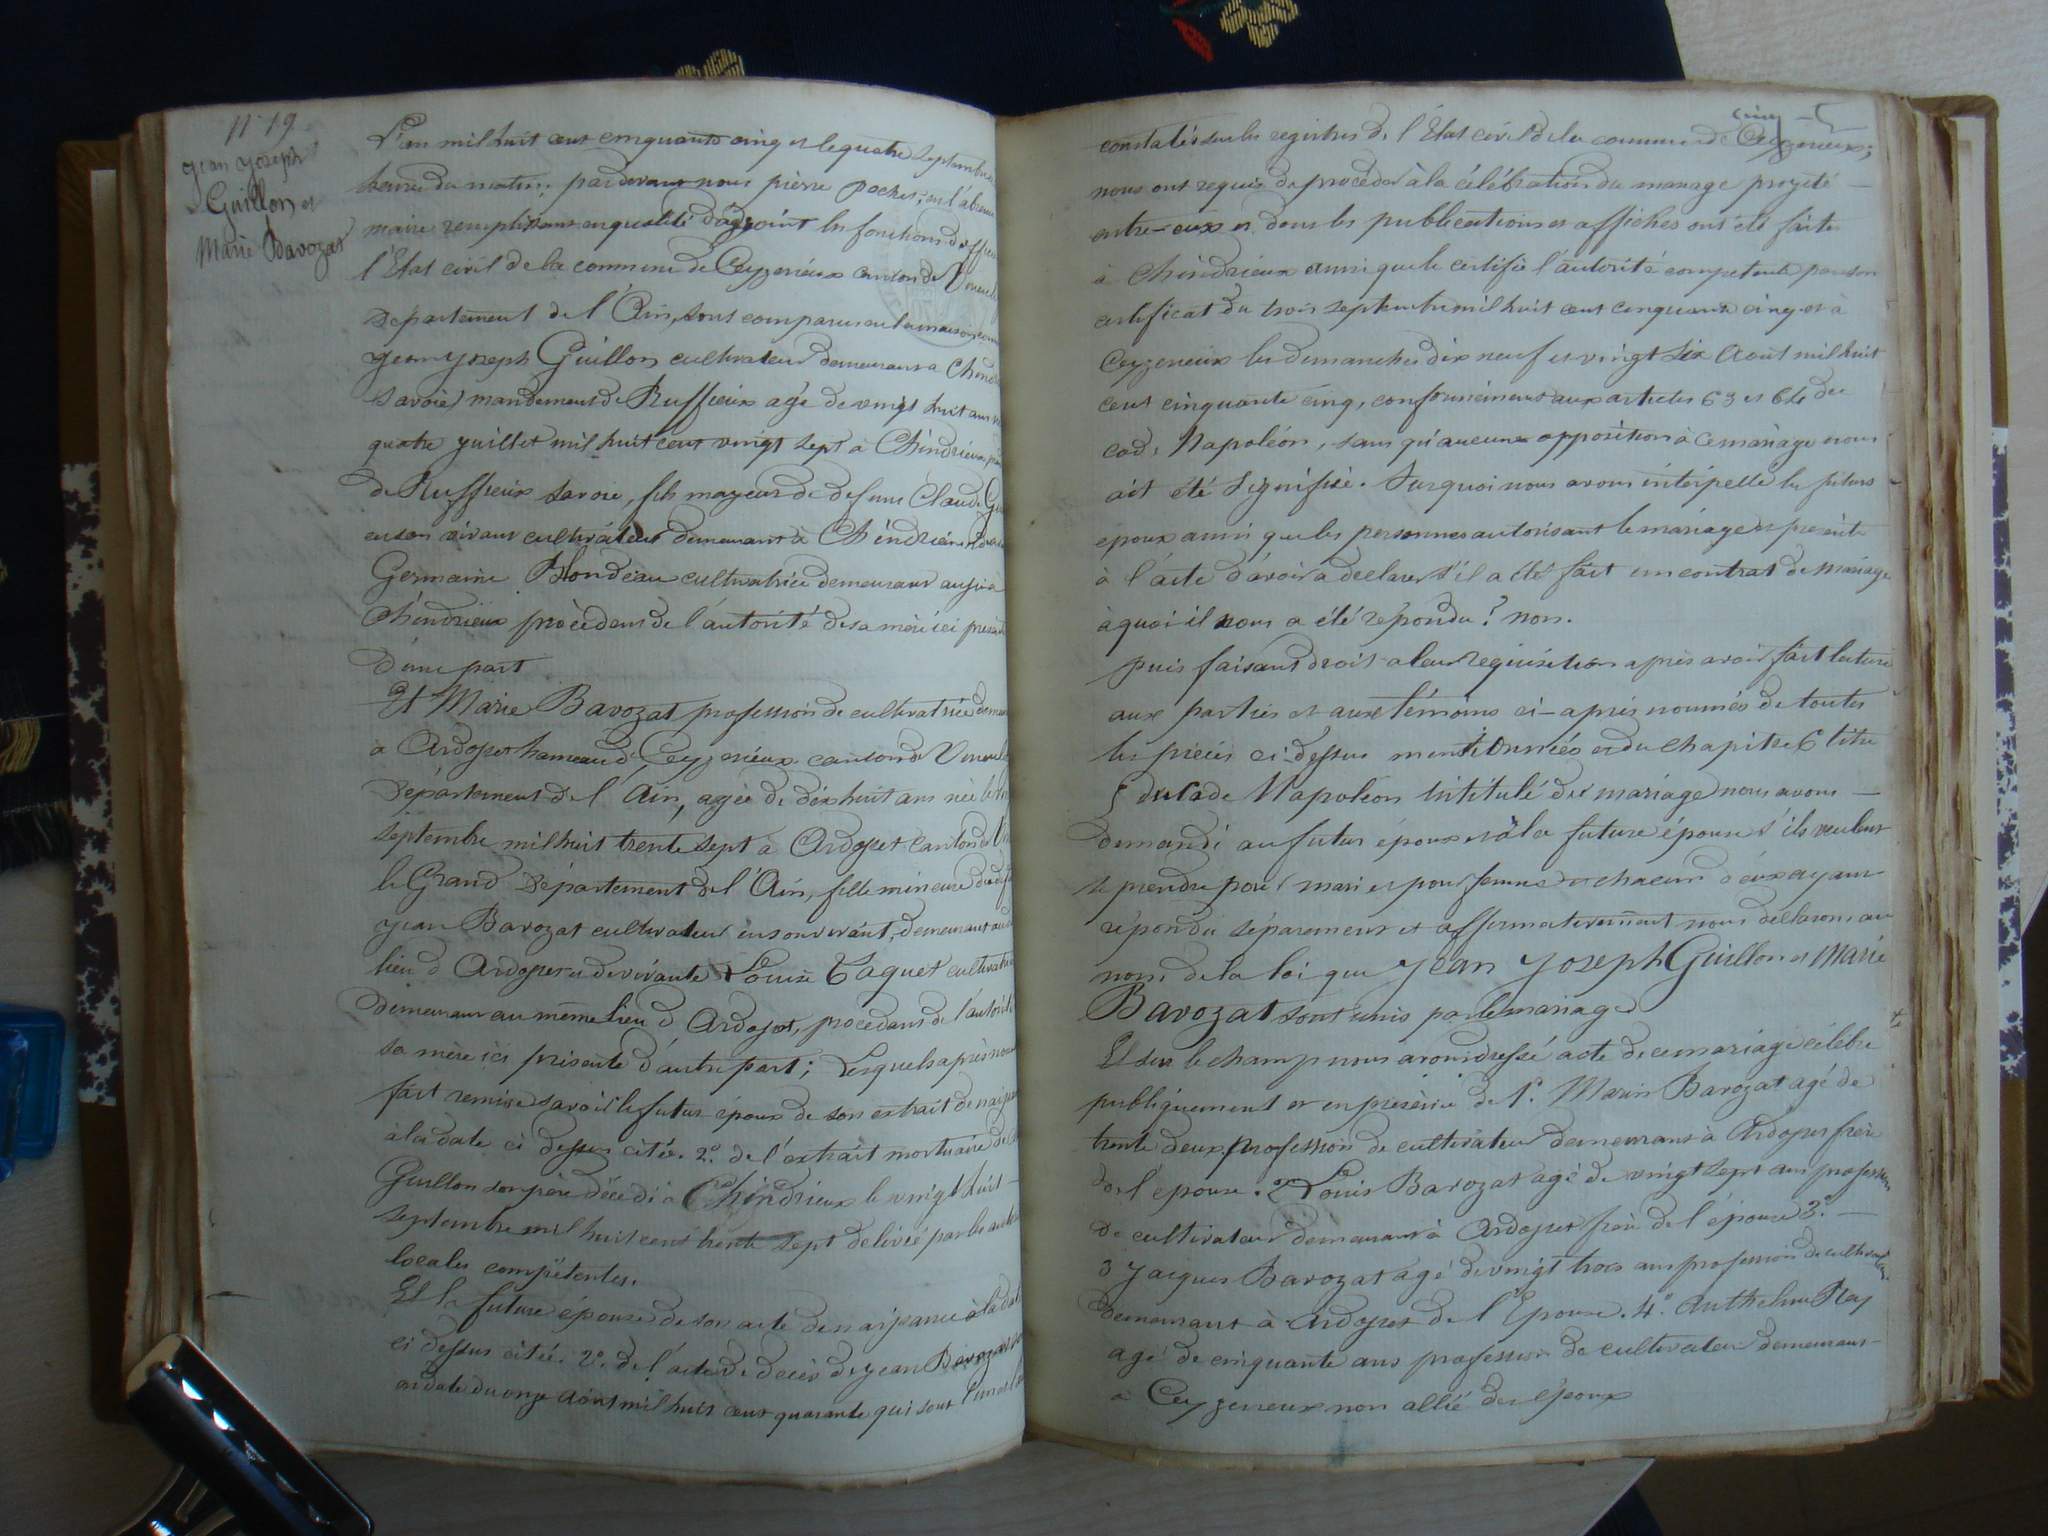 N° 19
Jean Joseph
Guillon et
Marie Bavozat
L'an mil huit cent cinquante cinq et le quatre septembre
heure du matin; pardevant nous pierre Pochet, en l'absence
maire remplissant en qualité d'adjoint les fonctions d'officier
l'Etat civil de la commune de Ceyzerieux canton de Virieu le
Département de l'Ain, sont comparus en la maison
Jean Joseph Guillon cultivateur demeurant a Chindrieux
Savoie mandement de Ruffieux agé de vingt huit ans
quatre juillet mil huit cent vingt sept à Chindrieux
de Ruffieux Savoie, fils mageur de defunt Claude
en son vivant cultivateur demeurant à Chindrieux et de
Germaine Blondeau cultivatrice demeurant aussi à
Chindrieux procèdant de l'autorité de sa mère ici présente
d'une part
Et Marie Bavozat profession de cultivatrice
à Ardosset hameau de Ceyzerieux canton de Virieu
Département de l'Ain, agée de dix huit ans née le
septembre mil huit trente sept à Ardosset canton de
le Grand Département de l'Ain, fille mineure de
Jean Bavozat cultivateur en son vivant, demeurant au
lieu d'Ardosset et de vivante Louise Taquet
demeurant au même lieu d'Ardosset, procédant de l'autorité
sa mère ici présente d'autre part; Lesquels après nous
fait remise savoir le futur époux de son extrait de naissance
à la date ci dessus citée. 2° de l'extrait mortuaire de
Guillon son père décédé à Chindrieux le vingt huit
septembre mil huit cent trente sept delivré par les
locales compétentes.
Et la future épouse de son acte de naissance à la date
ci dessus citée. 2° de l'acte de decès de Jean Bavozat
en date du onze Août mil huit cent quarante qui sont
cinq
constatés sur les registres de l'Etat civil de la commune de Ceyzerieux;
nous ont requis de procéder à la célébration du mariage projeté
entre-eux et dont les publications et affiches ont été faites
à Chindrieux ainsi que le certifie l'autorité competente par son
certificat du trois septembre mil huit cent cinquante cinq et à
Ceyzerieux les dimanches dix neuf et vingt six Août mil huit
cent cinquante cinq, conformément aux articles 63 et 64 du
code Napoléon, sans qu'aucune opposition à ce mariage nous
ait été signifiée. Sur quoi nous avons interpellé les futurs
epoux ainsi que les personnes autorisant le mariage et présente
à l'acte d'avoir à declarer s'il a été fait un contrat de mariage
à quoi il nous a été répondu? non.
puis faisant droit a leur requisition après avoir fait lecture
aux parties et aux témoins ci-après nommés de toutes
les pièces ci-dessus mentionnées et du chapitre 6 titre
5 du Code Napoléon intitulé du mariage nous avons
demandé au futur époux et à la future épouse s'ils veulent
se prendre pour mari et pour femme et chacun d'eux ayant
répondu séparement et affirmativement nous déclarons au
nom de la loi que Jean Joseph Guillon et Marie
Bavozat sont unis par le mariage
Et sur le champ nous avons dressé acte de ce mariage célébré
publiquement et en présence de 1° Marin Bavozat agé de
trente deux profession de cultivateur demeurant à Ardosset frère
de l'épouse. 2° Louis Bavozat agé de vingt sept ans profession
de cultivateur demeurant à Ardosset frère de l'épouse 3°
3 Jacques Bavozat agé de vingt trois ans profession de cultivateur
demeurant à Ardosset de l'Epouse. 4° Anthelme Rey
agé de cinquante ans profession de cultivateur demeurant
a Ceyzerieux non allié des époux